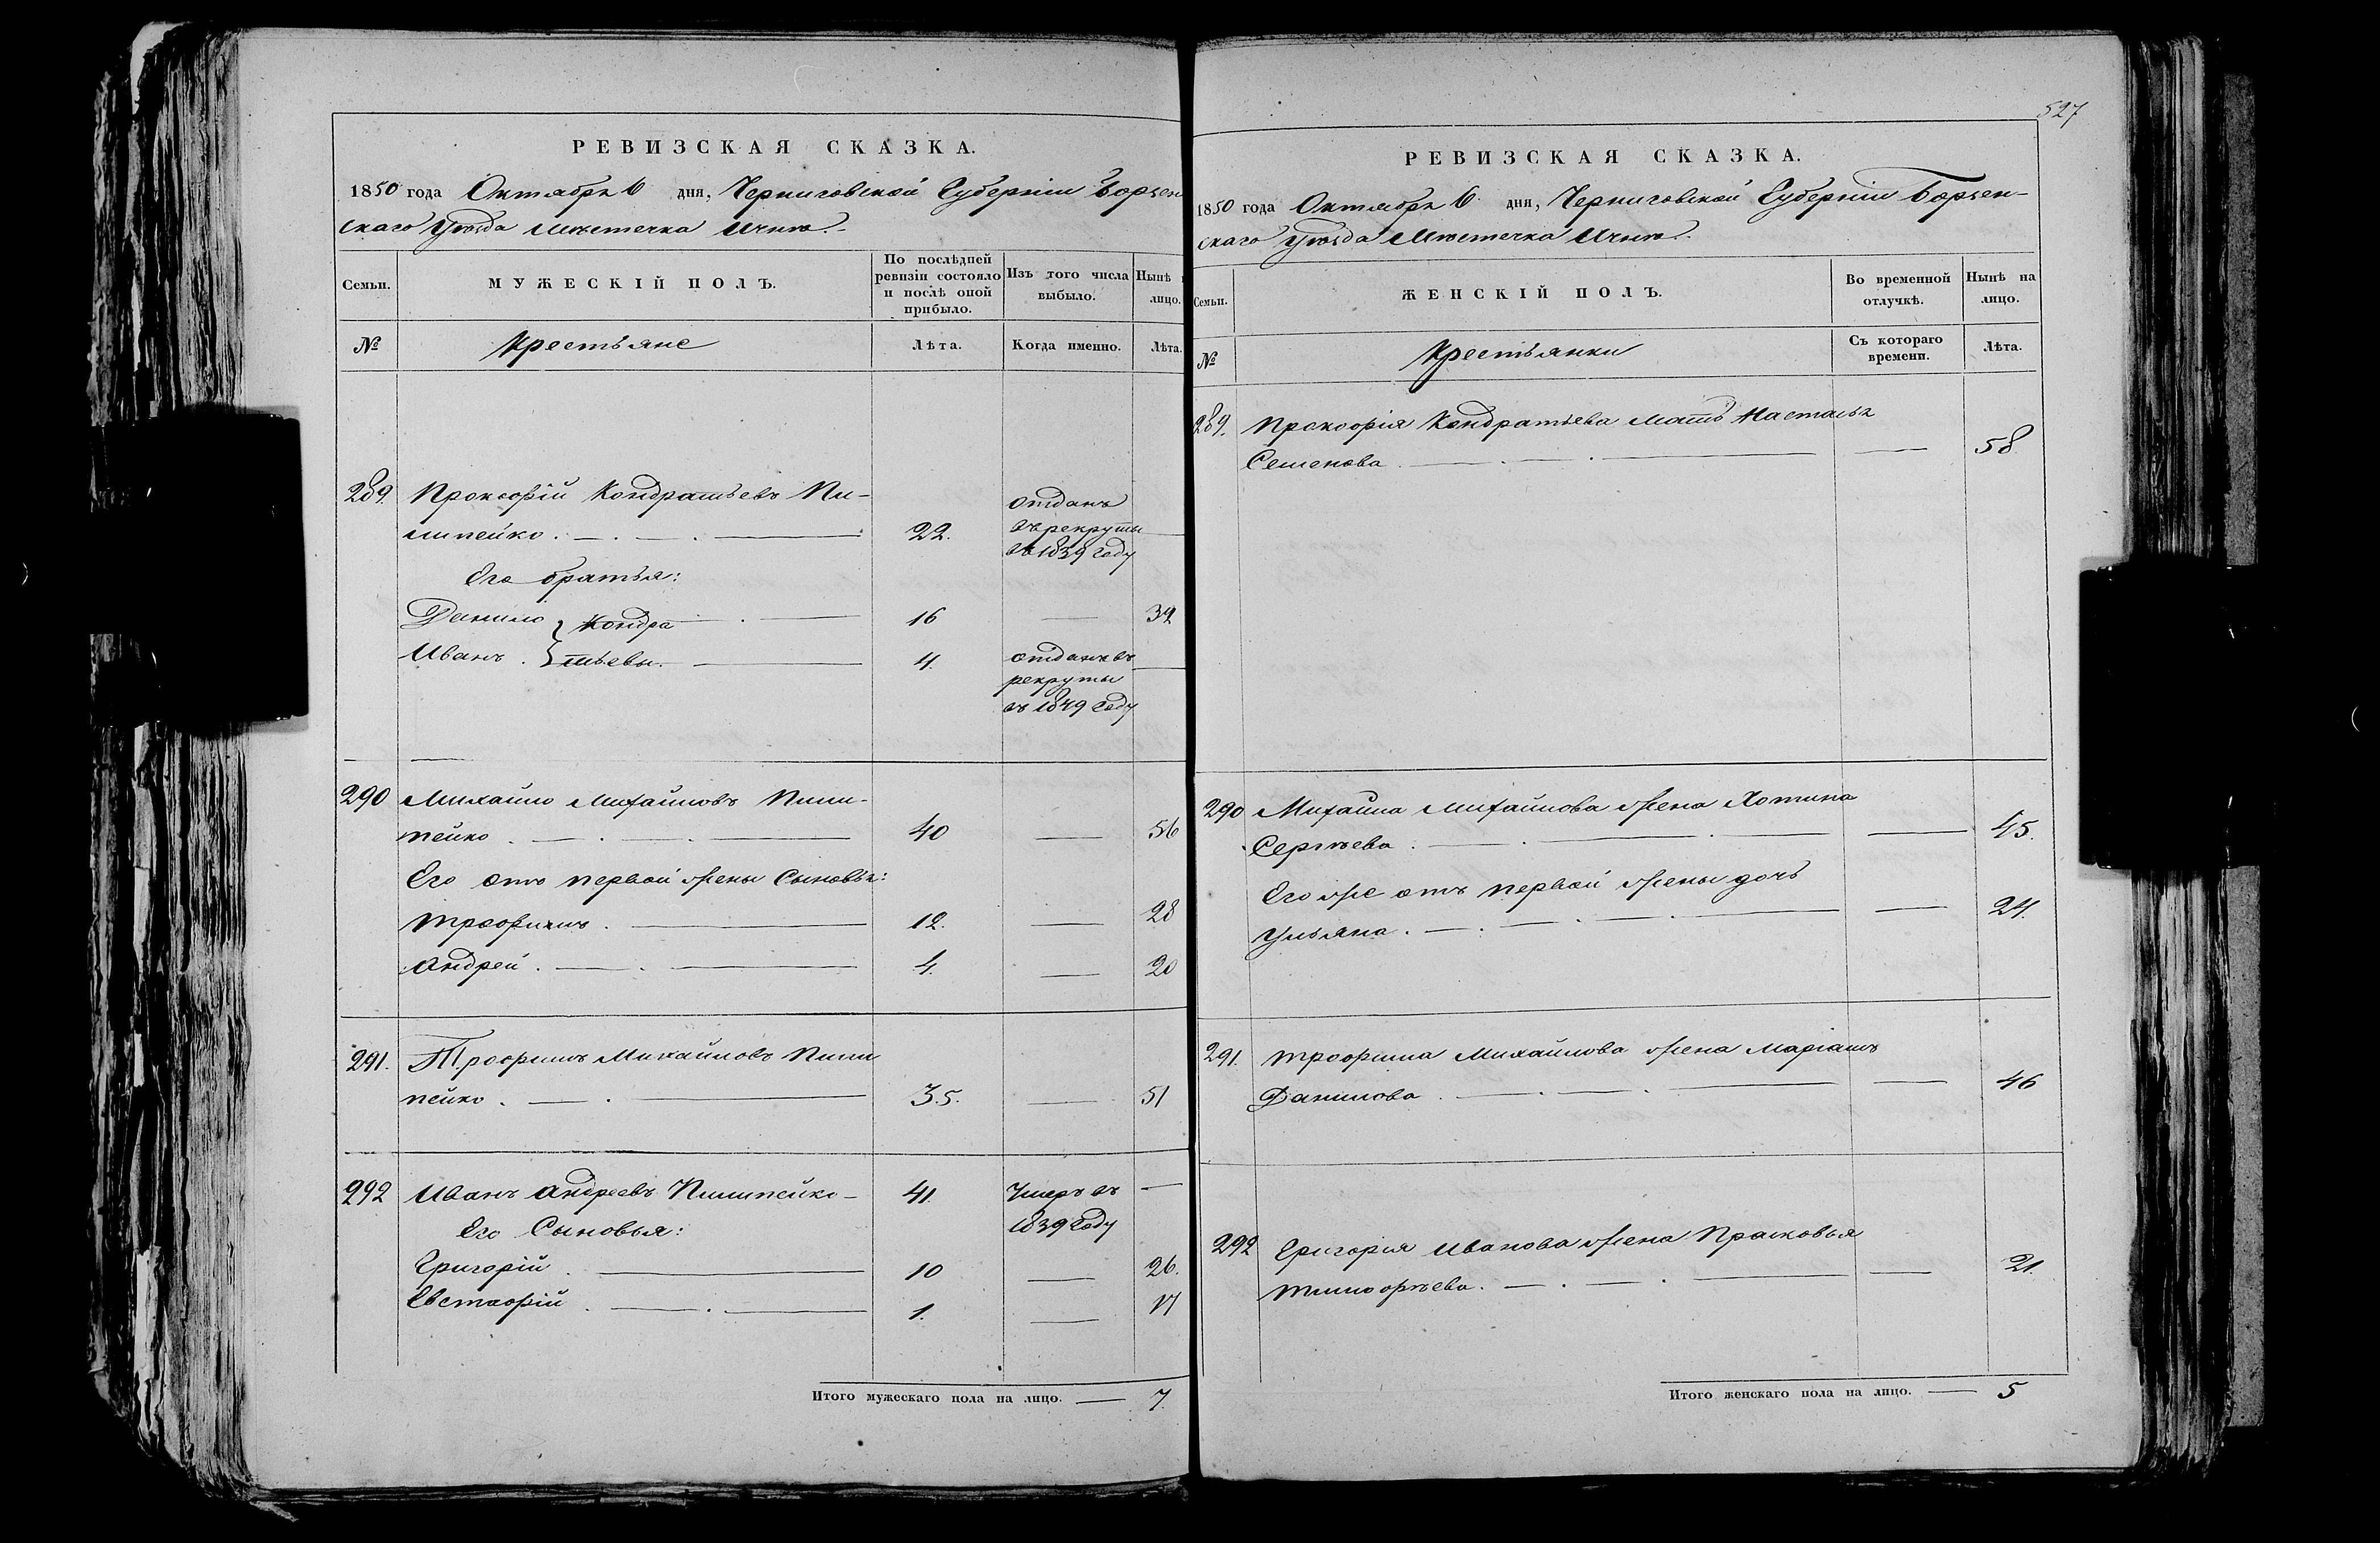 РЕВИЗСКАЯ СКАЗКА.
1850 года Октября 6 дня, Черниговской Губерніи Борзен
скаго Уѣзда Мѣстечка Ични.
Семьи. МУЖЕСКІЙ ПОЛЪ. По послѣдней ревизіи состояло и послѣ оной прибыло. Изъ того числа выбыло. Нынѣ лицо.
№ Крестьяне Лѣта. Когда именно. Лѣта.
289. Прокофій Кондратьевъ Пи-
липейко. 22. отданъ въ рекруты въ 1839 году
Его братья:
Данило } Кондра 16 32
Иванъ. } тьевы. 4. отданъ въ рекруты въ 1849 году
290 Михайло Михайловъ Пили-
пейко 40 56
Его отъ первой жены Сыновья:
Трофимъ. 12. 28
Андрей. 4. 20
291. Трофимъ Михайловъ Пили
пейко. 35. 51
292 Иванъ Андреевъ Пилипейко- 41. Умеръ въ —
Его Сыновья: 1839 году
Григорій 10 26.
Евстафій 1. 17
Итого мужескаго пола на лицо. — 7.
527
РЕВИЗСКАЯ СКАЗКА.
1850 года Октября 6 дня, Черниговской Губерніи Борзен-
скаго Уѣзда Мѣстечка Ични.
Семьи. ЖЕНСКІЙ ПОЛЪ. Во временной отлучкѣ. Нынѣ на лицо.
№ Крестьянки Съ котораго времени. Лѣта.
289. Прокофія Кондратьева мать Настасья
Семенова 58
290 Михайла Михайлова жена Хотина
Сергѣева 45.
Его же отъ первой жены дочь
Ульяна. 24.
291. Трофима Михайлова жена Маріамъ
Данилова 46
292 Григорія Иванова жена Прасковья
Тимофѣева. 21.
Итого женскаго пола на лицо. — 5